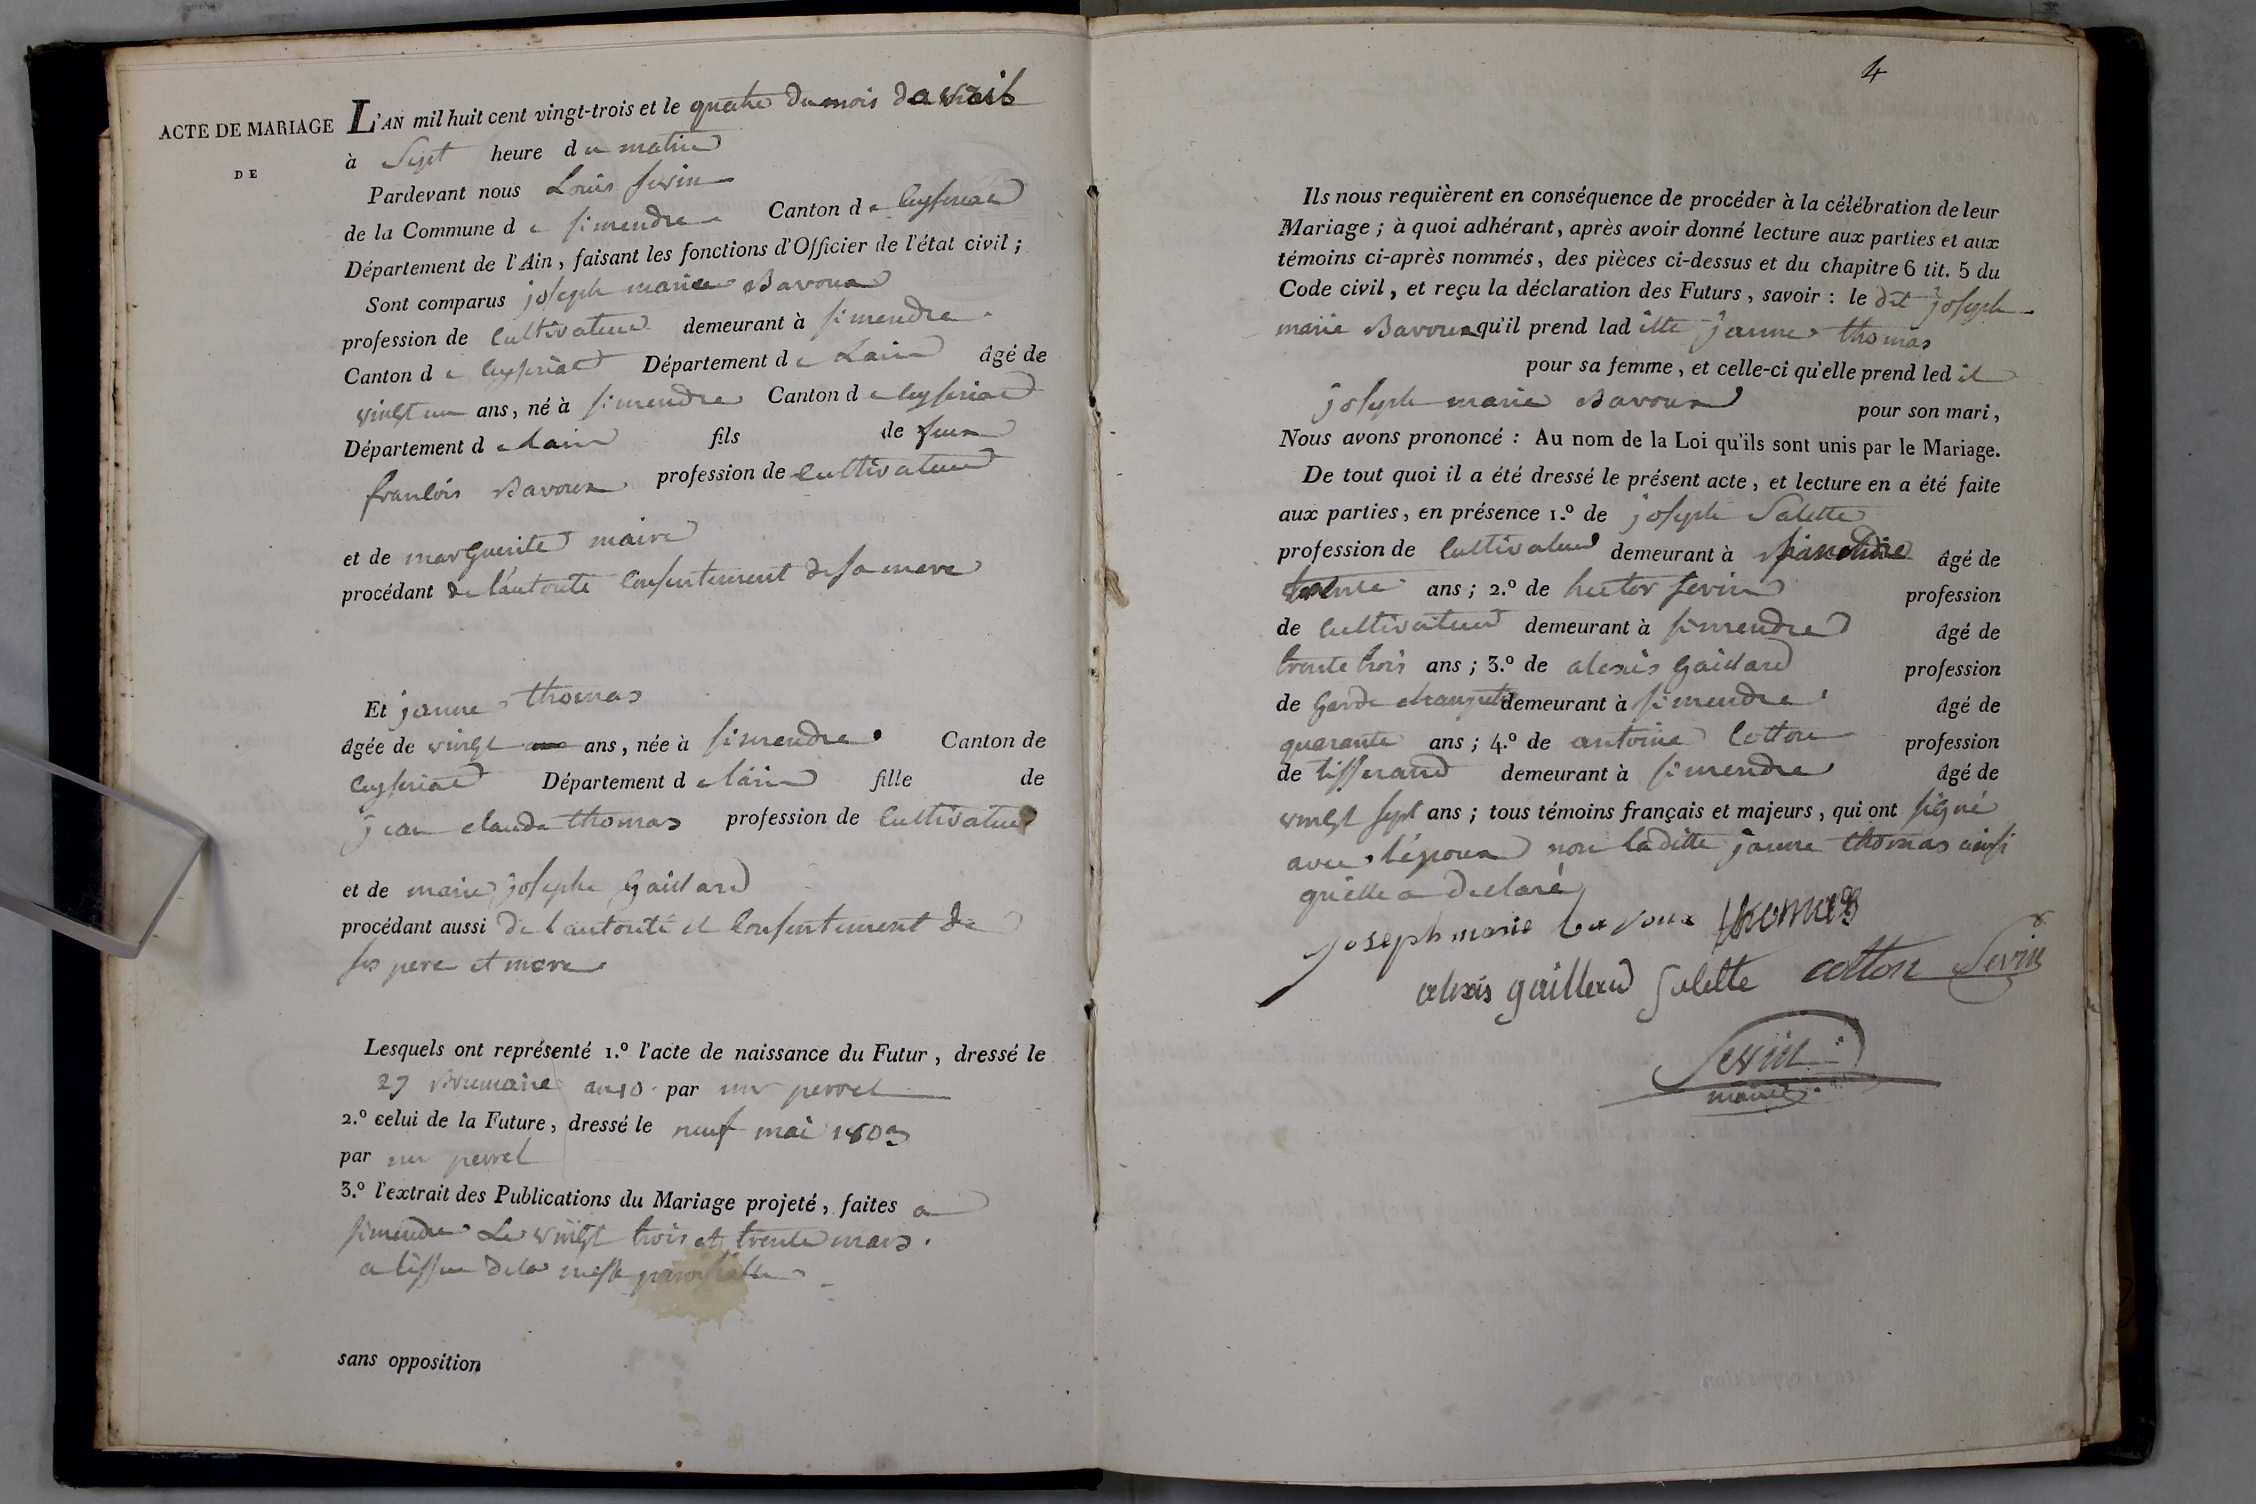 ACTE DE MARIAGE
DE
L'AN mil huit cent vingt-trois et le quatre du mois davril
à Sept heure du matin
Pardevant nous Louis sevin
de la Commune de simendre Canton de Ceyseriat
Département de l'Ain, faisant les fonctions d'Officier de l'état civil;
Sont comparus joseph marie Bavoux
profession de Cultivateur demeurant à simendre
Canton de Ceyseriat Département de Lain âgé de
vingt un ans, né à simendre Canton de Ceyseriat
Département de Lain fils de feux
francois Bavoux profession de Cultivateur
et de marguerite maire
procédant de l'autorité Consentement de sa mere
Et janne thomas
âgée de vingt ans, née à simendre Canton de
Ceyseriat Département de lain fille de
jean claude thomas profession de Cultivateur
et de marie josephe Gaillard
procédant aussi de l'autorité et Consentement de
ses pere et mere
Lesquels ont représenté 1.º l'acte de naissance du Futur, dressé le
29 Brumaire an 10 par mr perret
2.º celui de la Future, dressé le neuf mai 1803
par mr perret
3.º l'extrait des Publications du Mariage projeté, faites a
simendre Le vingt trois et trente mars.
a lissue de la messe paroissialle
sans opposition
4
Ils nous requièrent en conséquence de procéder à la célébration de leur
Mariage; à quoi adhérant, après avoir donné lecture aux parties et aux
témoins ci-après nommés, des pièces ci-dessus et du chapitre 6 tit. 5 du
Code civil, et reçu la déclaration des Futurs, savoir: le dit joseph
marie Bavoux qu'il prend laditte janne thomas
pour sa femme, et celle-ci qu'elle prend ledit
joseph marie Bavoux pour son mari,
Nous avons prononcé: Au nom de la Loi qu'ils sont unis par le Mariage.
De tout quoi il a été dressé le présent acte, et lecture en a été faite
aux parties, en présence 1.º de joseph Salette
profession de Cultivateur demeurant à simendre âgé de
trente ans; 2.º de hector sevin profession
de Cultivateur demeurant à simendre âgé de
trente trois ans; 3.º de alexis Gaillard profession
de Garde champetre demeurant à simendre âgé de
quarante ans; 4.º de antoine Cotton profession
de tisserand demeurant à simendre âgé de
vingt sept ans; tous témoins français et majeurs, qui ont signé
avec l'époux non laditte janne thomas ainsi
qu'elle a declaré
joseph marie bavoux thomas
alexis gaillard Salette cotton Sevin
Sevin
maire